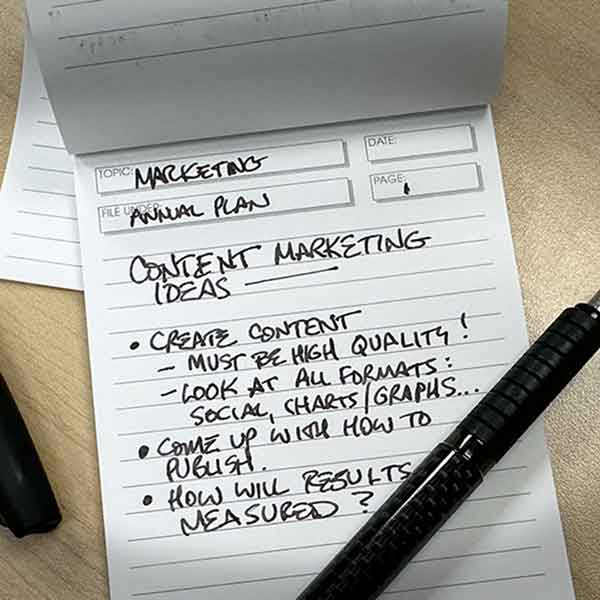 TOPIC: MARKETING
DATE:
FILE UNDER: ANNUAL PLAN
PAGE: 1
CONTENT MARKETING
IDEAS
• CREATE CONTENT
- MUST BE HIGH QUALITY!
- LOOK AT ALL FORMATS:
SOCIAL, CHARTS/GRAPHS...
• COME UP WITH HOW TO
PUBLISH.
• HOW WILL RESULTS
MEASURED?